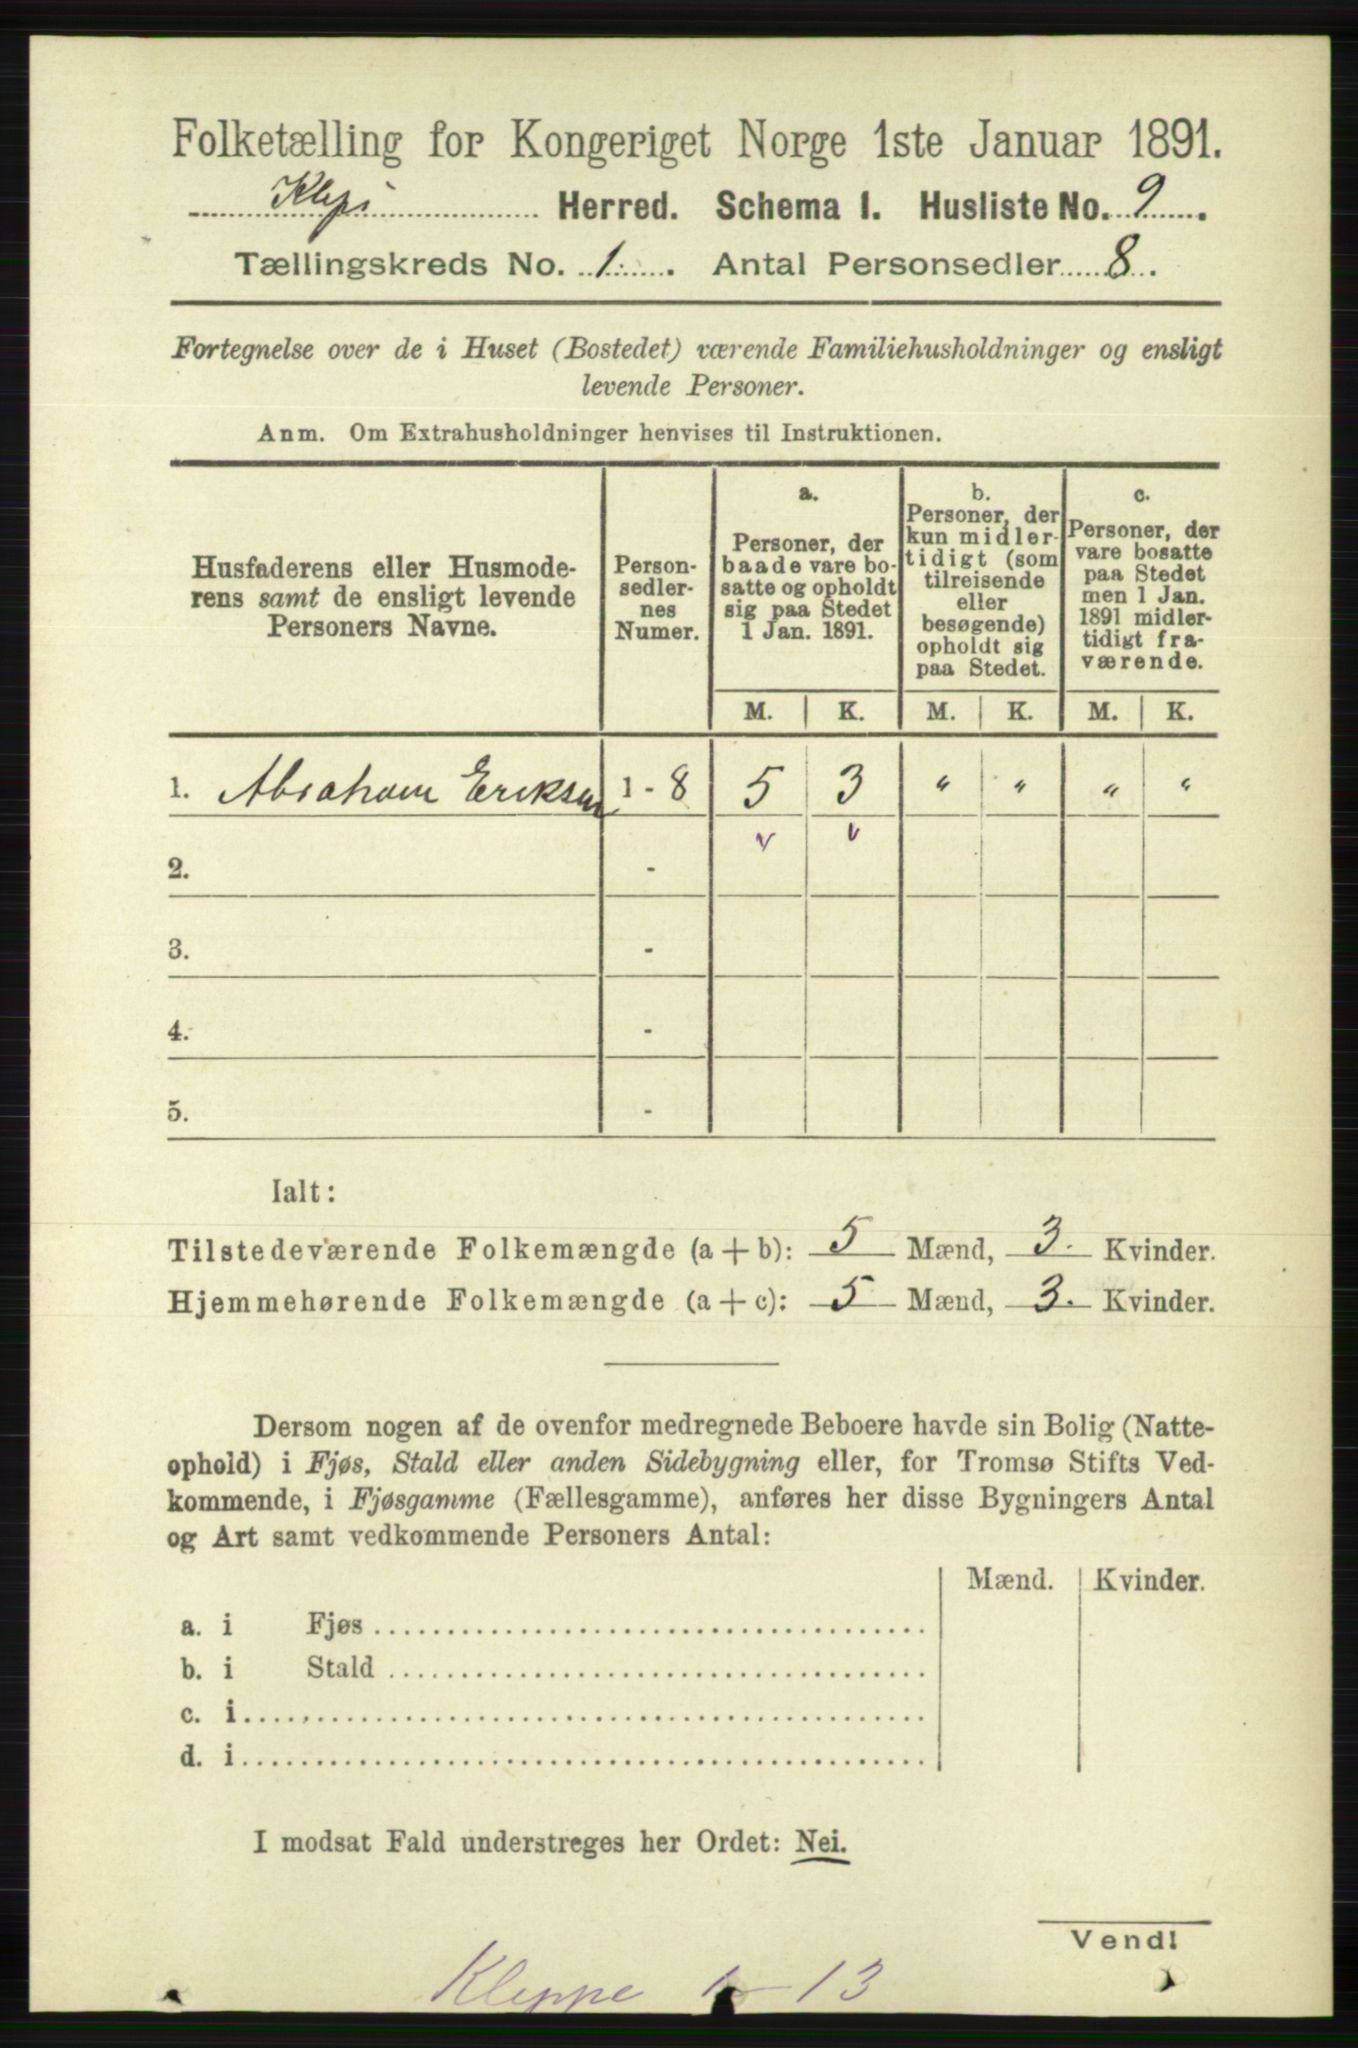 Folketælling for Kongeriget Norge 1ste Januar 1891.
Klepp Herred. Schema 1. Husliste No. 9.
Tællingskreds No. 1. Antal Personsedler 8.
Fortegnelse over de i Huset (Bostedet) værende Familiehusholdninger og ensligt
levende Personer.
Anm. Om Extrahusholdninger henvises til Instruktionen.
Husfaderens eller Husmode-
rens samt de ensligt levende
Personers Navne.
Person-
sedler-
nes
Numer.
a.
Personer, der
baade vare bo-
satte og opholdt
sig paa Stedet
1 Jan. 1891.
b.
Personer, der
kun midler-
tidigt (som
tilreisende
eller
besøgende)
opholdt sig
paa Stedet.
c.
Personer, der
vare bosatte
paa Stedet
men 1 Jan.
1891 midler-
tidigt fra-
værende.
M. K. M. K. M. K.
1. Abraham Eriksen 1 - 8 5 3 " " " "
2. -
3. -
4. -
5. -
Ialt:
Tilstedeværende Folkemængde (a + b): 5 Mænd, 3. Kvinder.
Hjemmehørende Folkemængde (a + c): 5 Mænd, 3. Kvinder.
Dersom nogen af de ovenfor medregnede Beboere havde sin Bolig (Natte-
ophold) i Fjøs, Stald eller anden Sidebygning eller, for Tromsø Stifts Ved-
kommende, i Fjøsgamme (Fællesgamme), anføres her disse Bygningers Antal
og Art samt vedkommende Personers Antal:
Mænd. Kvinder.
a. i Fjøs
b. i Stald
c. i
d. i
I modsat Fald understreges her Ordet: Nei.
Vend!
Kleppe 1-13